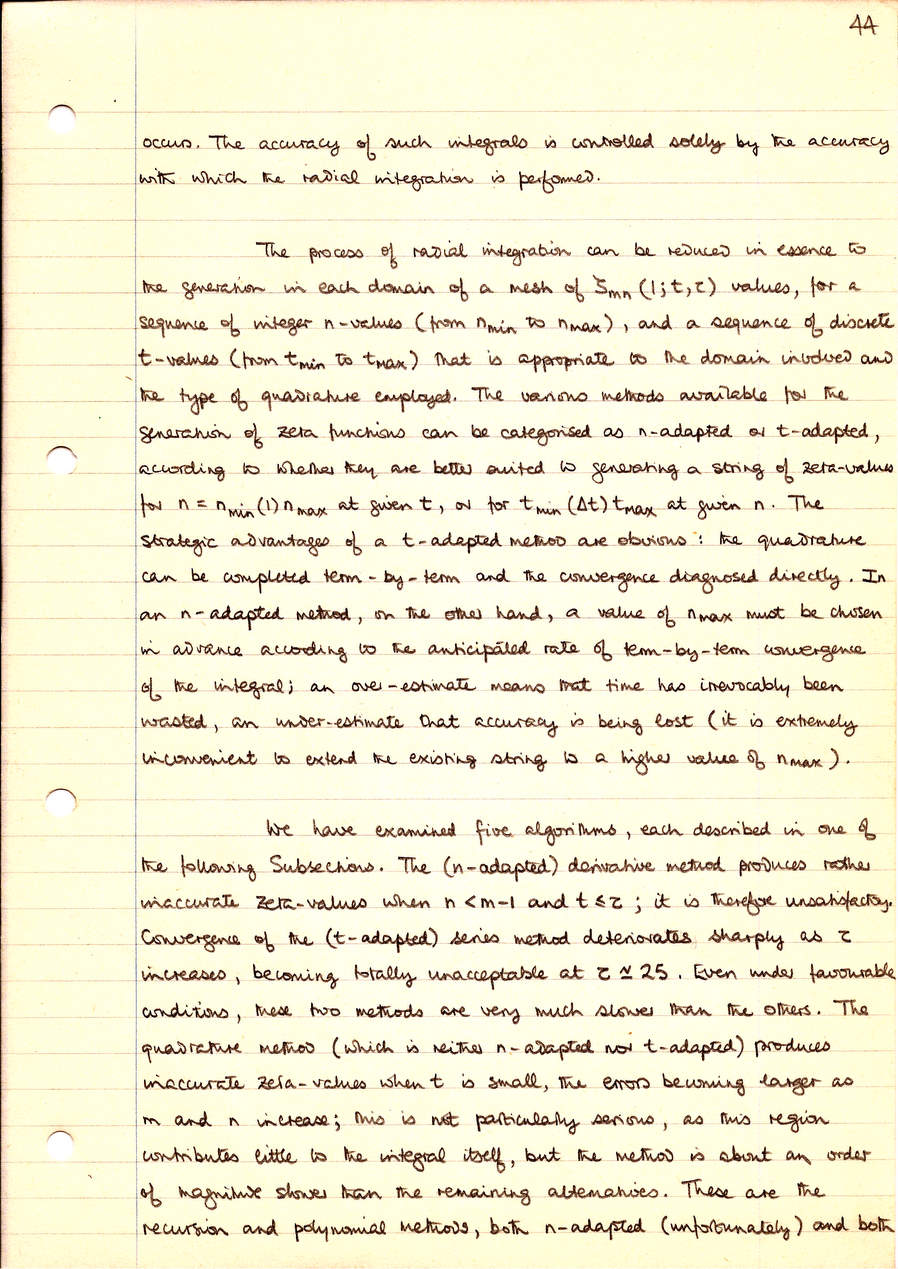 44
occurs. The accuracy of such integrals is controlled solely by the accuracy
with which the radial integration is performed.
The process of radial integration can be reduced in essence to
the generation in each domain of a mesh of ζmn (1; t, τ) values, for a
sequence of integer n-values (from nmin to nmax), and a sequence of discrete
t-values (from tmin to tmax) that is appropriate to the domain involved and
the type of quadrature employed. The various methods available for the
generation of zeta functions can be categorised as n-adapted or t-adapted,
according to whether they are better suited to generating a string of zeta-values
for n = nmin (1) nmax at given t, or for tmin (Δt) tmax at given n. The
strategic advantages of a t-adapted method are obvious: the quadrature
can be completed term-by-term and the convergence diagnosed directly. In
an n-adapted method, on the other hand, a value of nmax must be chosen
in advance according to the anticipated rate of term-by-term convergence
of the integral; an over-estimate means that time has irrevocably been
wasted, an under-estimate that accuracy is being lost (it is extremely
inconvenient to extend the existing string to a higher value of nmax).
We have examined five algorithms, each described in one of
the following Subsections. The (n-adapted) derivative method produces rather
inaccurate zeta-values when n < m-1 and t ≤ τ; it is therefore unsatisfactory.
Convergence of the (t-adapted) series method deteriorates sharply as τ
increases, becoming totally unacceptable at τ ≃ 25. Even under favourable
conditions, these two methods are very much slower than the others. The
quadrature method (which is neither n-adapted nor t-adapted) produces
inaccurate zeta-values when t is small, the errors becoming larger as
m and n increase; this is not particularly serious, as this region
contributes little to the integral itself, but the method is about an order
of magnitude slower than the remaining alternatives. These are the
recursion and polynomial methods, both n-adapted (unfortunately) and both